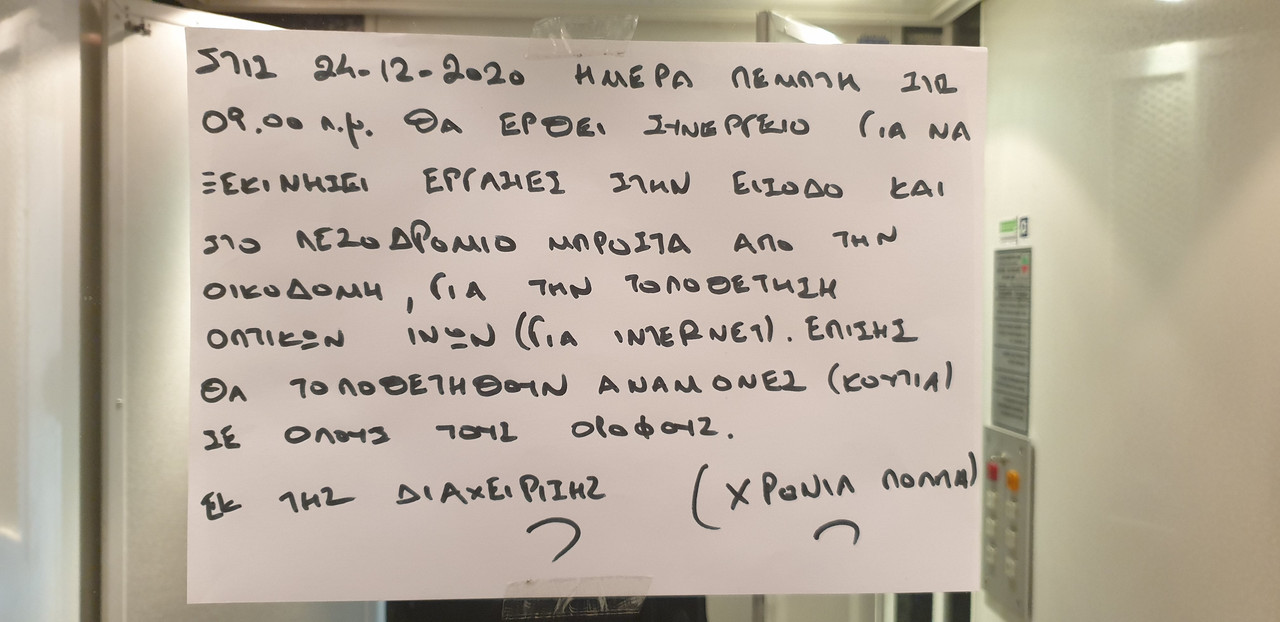 ΣΤΙΣ 24-12-2020 ΗΜΕΡΑ ΠΕΜΠΤΗ ΣΤΙΣ
09.00 π.μ. ΘΑ ΕΡΘΕΙ ΣΥΝΕΡΓΕΙΟ ΓΙΑ ΝΑ
ΞΕΚΙΝΗΣΕΙ ΕΡΓΑΣΙΕΣ ΣΤΗΝ ΕΙΣΟΔΟ ΚΑΙ
ΣΤΟ ΠΕΖΟΔΡΟΜΙΟ ΜΠΡΟΣΤΑ ΑΠΟ ΤΗΝ
ΟΙΚΟΔΟΜΗ, ΓΙΑ ΤΗΝ ΤΟΠΟΘΕΤΗΣΗ
ΟΠΤΙΚΩΝ ΙΝΩΝ (ΓΙΑ INTERNET). ΕΠΙΣΗΣ
ΘΑ ΤΟΠΟΘΕΤΗΘΟΥΝ ΑΝΑΜΟΝΕΣ (ΚΟΥΤΙΑ)
ΣΕ ΟΛΟΥΣ ΤΟΥΣ ΟΡΟΦΟΥΣ.
ΕΚ ΤΗΣ ΔΙΑΧΕΙΡΙΣΗΣ (ΧΡΟΝΙΑ ΠΟΛΛΑ)